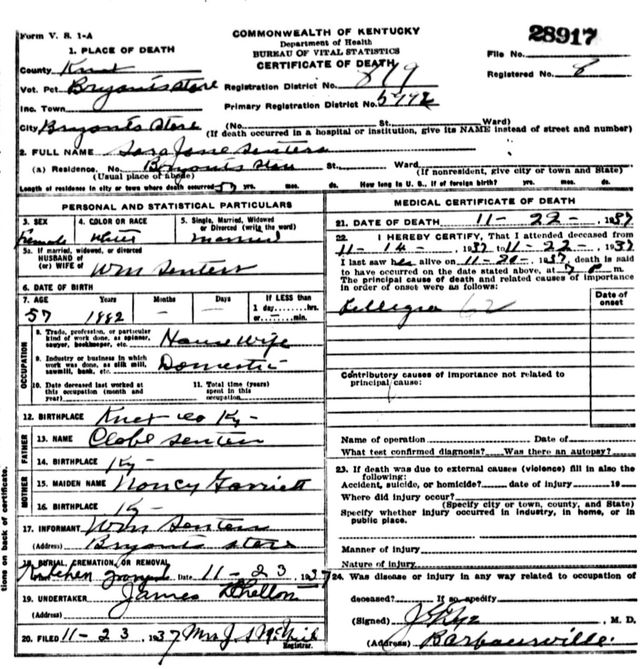 Form V. S. 1-A
COMMONWEALTH OF KENTUCKY
Department of Health
BUREAU OF VITAL STATISTICS
CERTIFICATE OF DEATH
28917
File No.
Registered No. 8
1. PLACE OF DEATH
County Knox
Vot. Pct Bryants Store
Registration District No. 819
Inc. Town
Primary Registration District No.
City Bryants Store (No. St. Ward)
(If death occurred in a hospital or institution, give its NAME instead of street and number)
2. FULL NAME Sara Jane Senters
(a) Residence. No. Bryants Store St., Ward.
(Usual place of abode) (If nonresident, give city or town and State)
Length of residence in city or town where death occurred 57 yrs. mos. ds. How long in U. S., if of foreign birth? yrs. mos. ds.
PERSONAL AND STATISTICAL PARTICULARS
3. SEX 4. COLOR OR RACE 5. Single, Married, Widowed or Divorced (write the word)
Female White Married
5a. If married, widowed, or divorced
HUSBAND OF
(or) WIFE OF Wm Senters
6. DATE OF BIRTH
7. AGE Years Months Days If LESS than
57 1882 - - 1 day, hrs.
or min.
OCCUPATION
8. Trade, profession, or particular kind of work done, as spinner, sawyer, bookkeeper, etc. House Wife
9. Industry or business in which work was done, as silk mill, sawmill, bank, etc. Domestic
10. Date deceased last worked at this occupation (month and year)
11. Total time (years) spent in this occupation
12. BIRTHPLACE Knox Co Ky-
FATHER
13. NAME Senters
14. BIRTHPLACE Ky-
MOTHER
15. MAIDEN NAME Nancy
16. BIRTHPLACE Ky-
17. INFORMANT Wm Senters
(Address) Bryants Store
18. BURIAL, CREMATION, OR REMOVAL
Date 11-23, 1937
19. UNDERTAKER James
(Address)
20. FILED 11-23, 1937 Mrs J. S.
Registrar.
MEDICAL CERTIFICATE OF DEATH
21. DATE OF DEATH 11-22-, 1937
22. I HEREBY CERTIFY, That I attended deceased from
11-14, 1937 to 11-22-, 1937
I last saw her alive on 11-20-, 1937, death is said
to have occurred on the date stated above, at m.
The principal cause of death and related causes of importance
in order of onset were as follows:
Date of onset
Pellegra 62
Contributory causes of importance not related to
principal cause:
Name of operation Date of
What test confirmed diagnosis? Was there an autopsy?
23. If death was due to external causes (violence) fill in also the
following:
Accident, suicide, or homicide? date of injury 19
Where did injury occur?
(Specify city or town, county, and State)
Specify whether injury occurred in industry, in home, or in
public place.
Manner of injury
Nature of injury
24. Was disease or injury in any way related to occupation of
deceased? If so, specify
(Signed) M. D.
(Address) Barbourville.
tions on back of certificate.